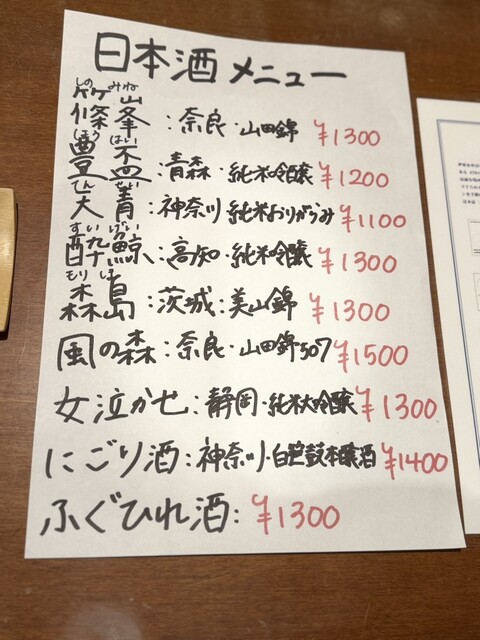 日本酒メニュー
篠峯：奈良・山田錦 ¥1300
豊盃：青森・純米吟醸 ¥1200
天青：神奈川 純米おりがらみ ¥1100
酔鯨：高知・純米吟醸 ¥1300
森島：茨城：美山錦 ¥1300
風の森：奈良・山田錦507 ¥1500
女泣かせ：静岡・純米大吟醸 ¥1300
にごり酒：神奈川・白笹鼓本醸酒 ¥1400
ふぐひれ酒：¥1300